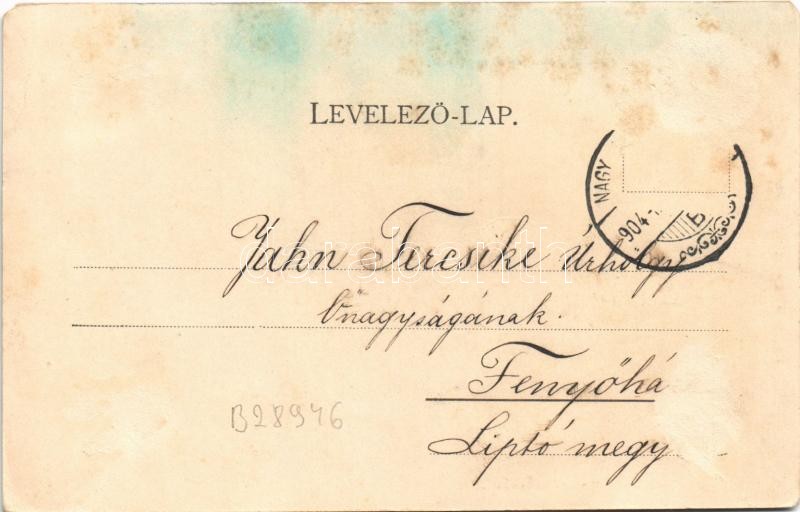 LEVELEZŐ-LAP.
NAGY
904
B
Jahn Tercsike Úrhölgy
Őnagyságának.
Fenyőhá
Liptó megy
B28946
darabanth